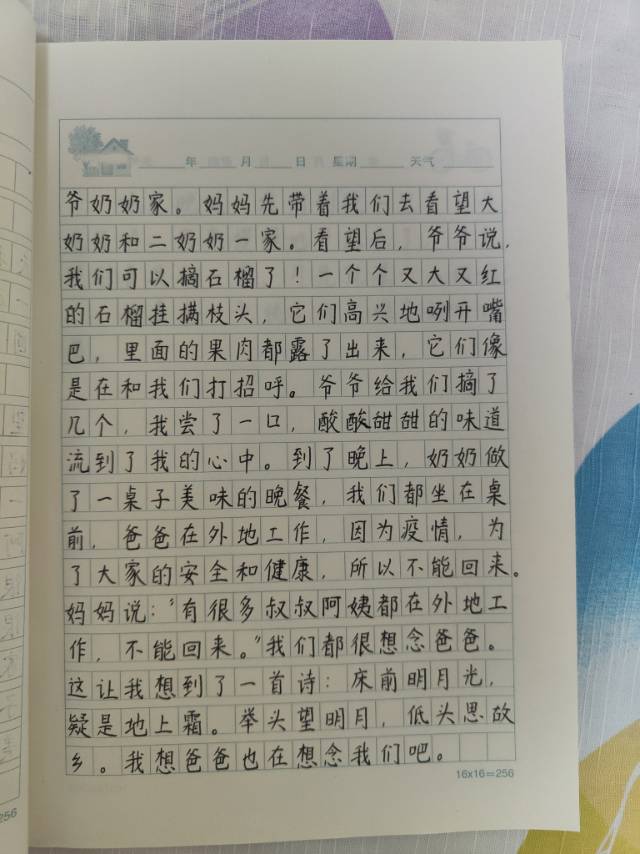 年 月 日 星期 天气
爷奶奶家。妈妈先带着我们去看望大
奶奶和二奶奶一家。看望后，爷爷说，
我们可以摘石榴了！一个个又大又红
的石榴挂满枝头，它们高兴地咧开嘴
巴，里面的果肉都露了出来，它们像
是在和我们打招呼。爷爷给我们摘了
几个，我尝了一口，酸酸甜甜的味道
流到了我的心中。到了晚上，奶奶做
了一桌子美味的晚餐，我们都坐在桌
前，爸爸在外地工作，因为疫情，为
了大家的安全和健康，所以不能回来。
妈妈说：“有很多叔叔阿姨都在外地工
作，不能回来。”我们都很想念爸爸。
这让我想到了一首诗：床前明月光，
疑是地上霜。举头望明月，低头思故
乡。我想爸爸也在想念我们吧。
16x16=256
256